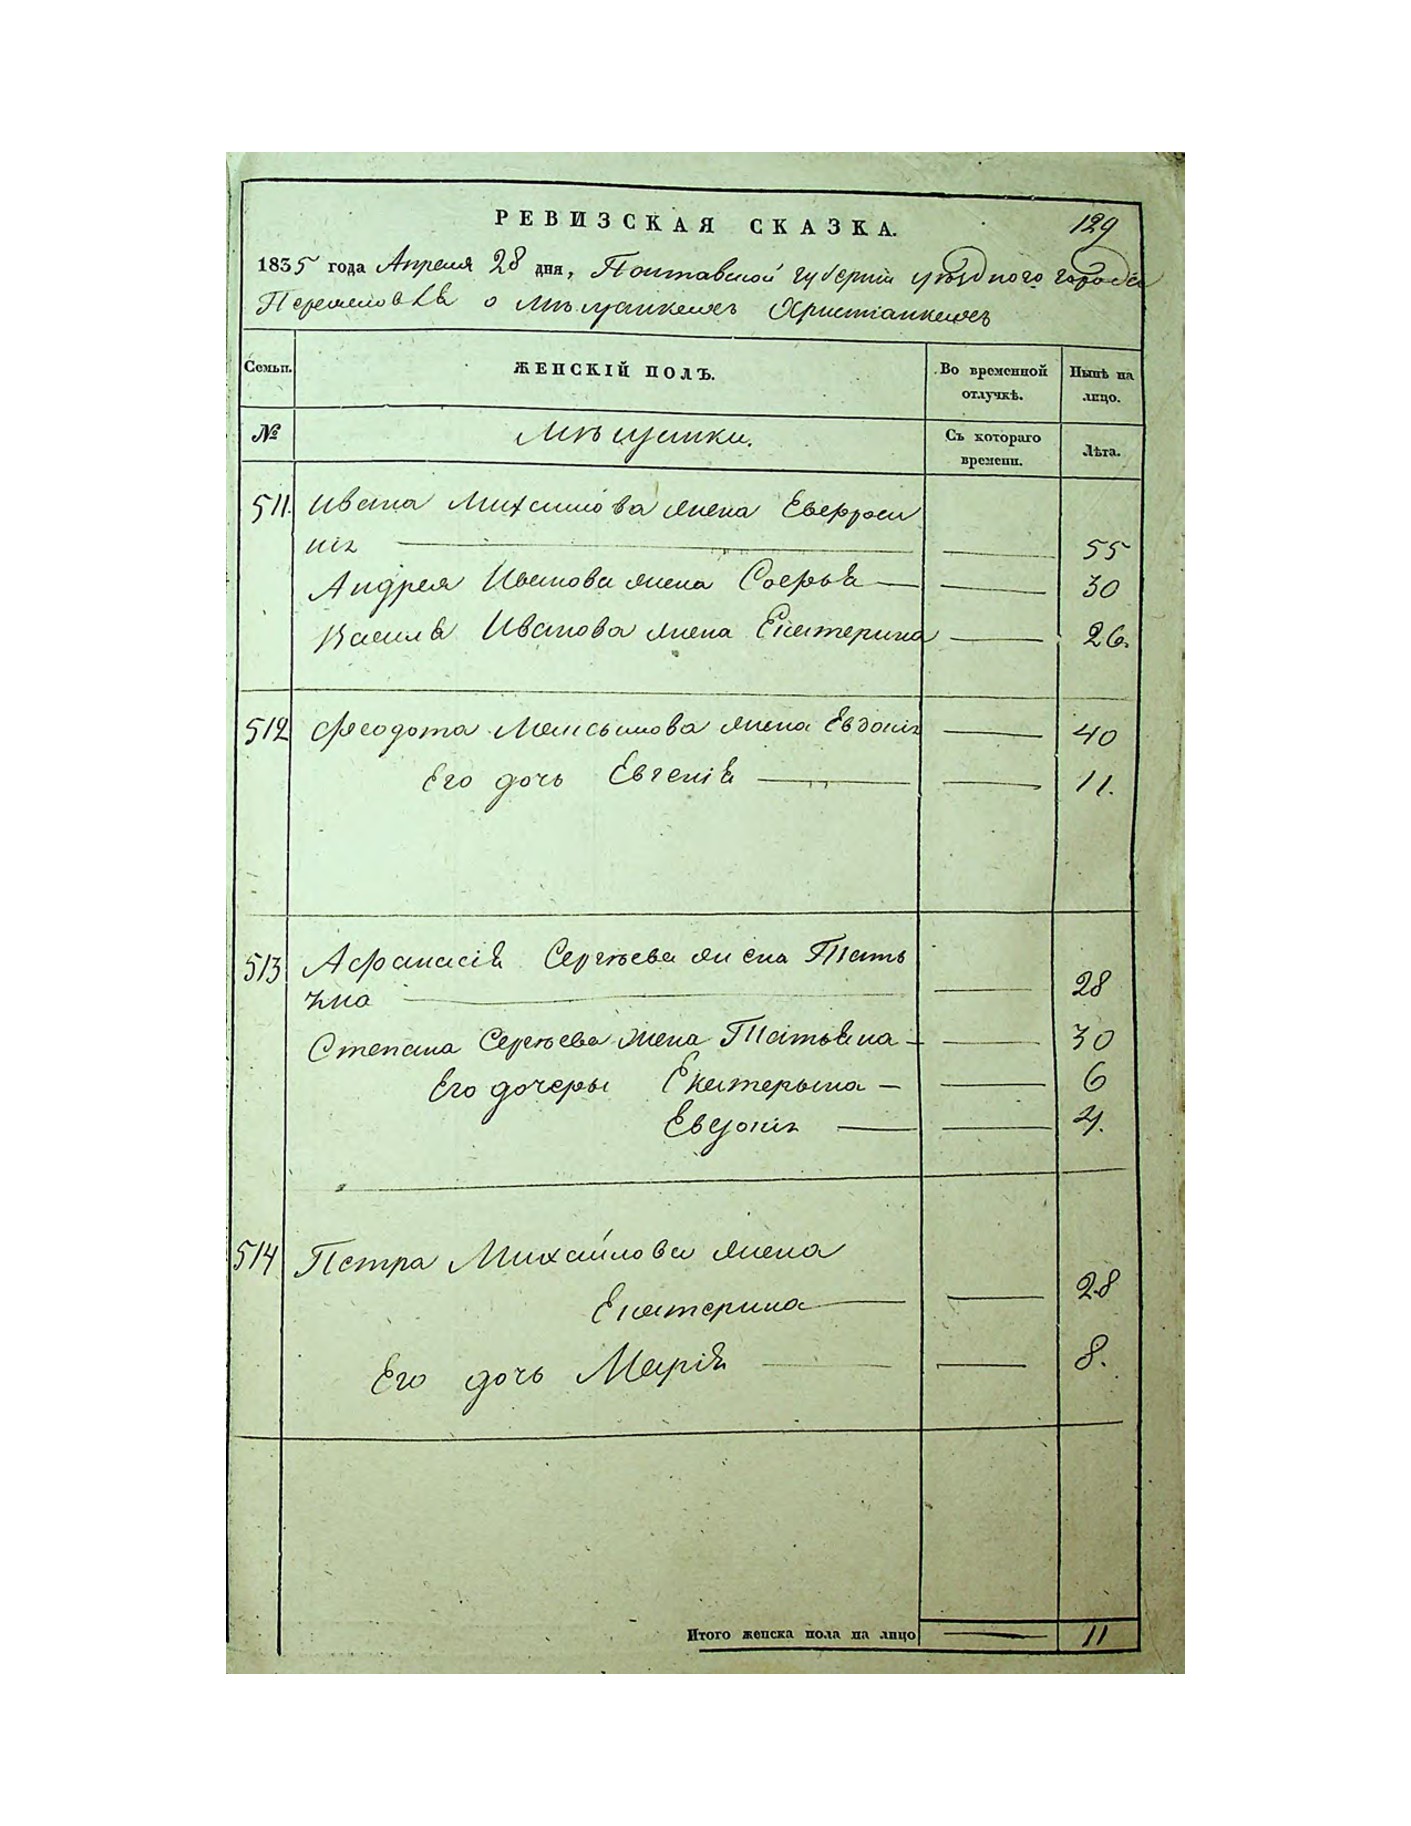 РЕВИЗСКАЯ СКАЗКА.
129
1835 года Апреля 28 дня, Полтавской губернiи уѣздного города
Переяслова о мѣщанкахъ Христiанкахъ
Семьи.
ЖЕНСКIЙ ПОЛЪ.
Во временной отлучкѣ.
Нынѣ на лицо.
№
Мѣщанки.
Съ котораго времени.
Лѣта.
511. Ивана Михайлова жена Евфроси
нiя 55
Андрея Иванова жена Софья 30
Василя Иванова жена Екатерина 26.
512 Феодота Максымова жена Евдокiя 40
Его дочь Евгенiя 11.
513 Афанасiя Сергѣева жена Тать
яна 28
Степана Сергѣева жена Татьяна 30
Его дочеры Екатерына 6
Евдокiя 4.
514 Петра Михайлова жена
Екатерина 28
Его дочь Марiя 8.
Итого женска пола на лицо 11